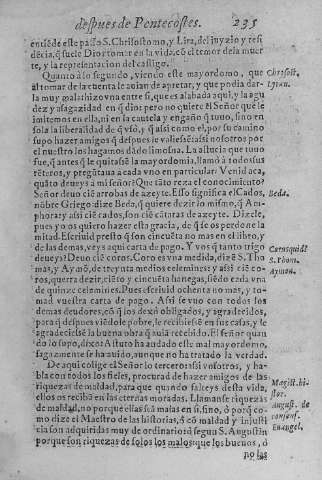 despues de Pentecostes. 235
entiẽde este passo S. Chrisostomo, y Lira, del juyzio y resi
dẽcia, q̃ suele Dios tomar en la vida, cõ el temor de la muer
te, y la representacion del castigo.
Quanto a lo segundo, viendo este mayordomo, que
al tomar de la cuenta le auian de apretar, y que podia dar-
la muy mala, hizo vna entre si, que es alabada aqui, y la agu
dez y sagazidad en q̃ dios; pero no quiere el Señor que le
imitemos en ella, ni en la cautela y engaño q̃ tuuo, sino en
sola la liberalidad de q̃ vsó, y q̃ assi como el, por su camino
supo hazer amigos q̃ despues le valiessẽ: assi nosotros por
el nuestro los hagamos dãdo limosna. La astucia que tuuo
fue, q̃ antes q̃ le quitassẽ la mayordomia, llamó a todos sus
rẽteros, y pregũtaua a cada vno en particular: Venid aca,
quãto deueys a mi señor? Que tãto reza el conocimiẽto?
Señor deuo ciẽ arrobas de azeyte. Ello significa el Cados,
nõbre Griego: dize Beda, q̃ quiere dezir lo mismo, q̃ Am
phora: y assi ciẽ cados, son ciẽ cãtaras de azeyte. Dizele,
pues yo os quiero hazer esta gracia, de q̃ se os perdone la
mitad. Escriuid presto q̃ son cincuẽta no mas en el libro, y
de las demas, veys aqui carta de pago. Y vos q̃ tanto trigo
deueys? Deuo ciẽ coros. Coro es vna medida, dizẽ S. Tho
mas, y Aymõ, de treynta medios celemines: y assi ciẽ co-
ros, querra dezir, ciẽto y cincuẽta hanegas, siẽdo cada vna
de quinze celemines. Pues escriuid ochenta no mas, y to-
mad vuestra carta de pago. Assi se vuo con todos los
demas deudores, cõ q̃ los dexó obligados, y agradecidos,
para q̃ despues viẽdole pobre, le recibiessẽ en sus casas, y le
agradeciessẽ la buena obra q̃ auiã recebido. El señor quan
do lo supo, dixo: Astuto ha andado este mal mayordomo,
sagazmente se ha auido, aunque no ha tratado la verdad.
De aqui colige el Señor lo tercero: assi vosotros, y ha
bla con todos los fieles, procurad de hazer amigos de las
riquezas de maldad, para que quando falteys desta vida,
ellos os recibã en las eternas moradas. Llamanse riquezas
de maldad, no porque ellas seã malas en si, sino, ó porq̃ co-
mo dize el Maestro de las historias, ã cõ maldad y injusti
cia son adquiridas muy de ordinario: ó segun S. Augustin
porque son riquezas de solos los malos: que los buenos, ó
no las
Chrisost.
Lyran.
Beda.
S. Thom.
Aymon.
Magist. hi-
stor.
August. de
consens.
Euangel.